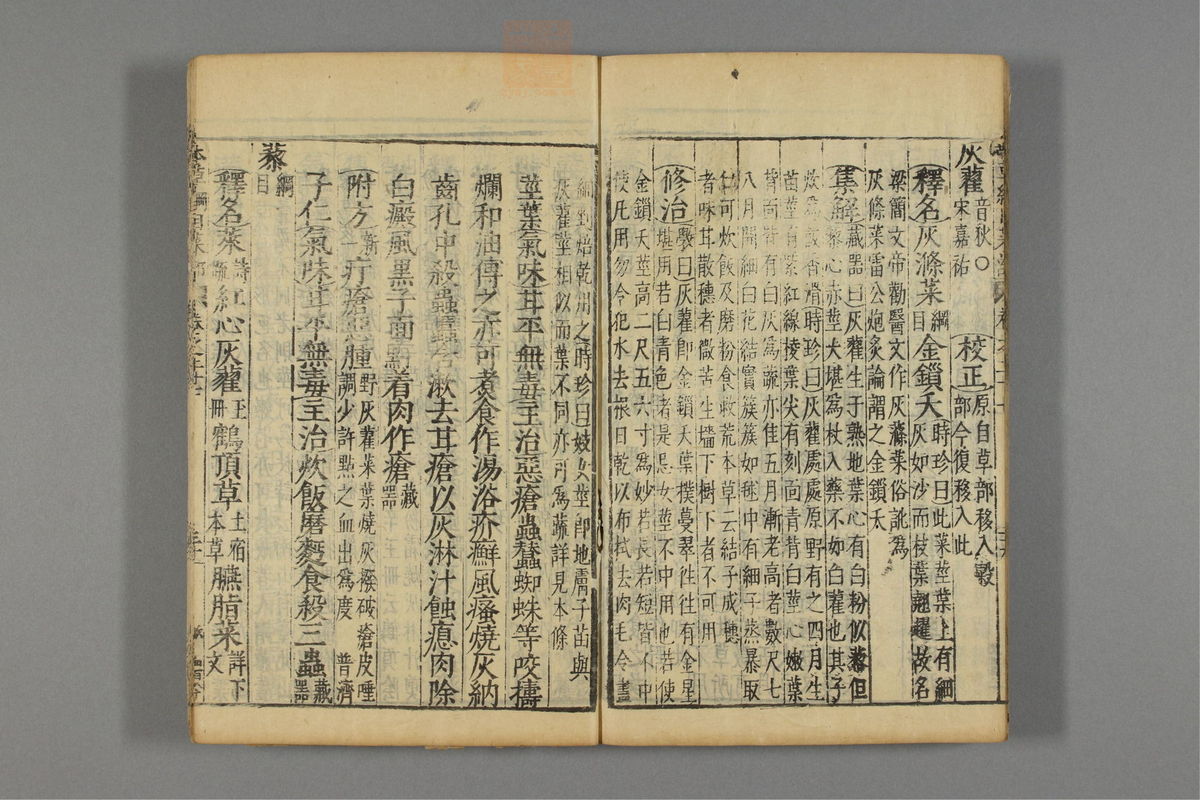 灰藋音秋〇宋嘉祐 校正原自草部移入穀部今復移入此
釋名灰滌菜綱目金鎖夭時珍曰此菜莖葉上有細灰如沙而枝葉翹趯故名
梁簡文帝勸醫文作灰蓧菜俗訛為灰條菜雷公炮炙論謂之金鎖夭
集解藏器曰灰藋生于熟地葉心有白粉似藜但藜心赤莖大堪為杖入藥不如白藋也其子
炊為飯香滑時珍曰灰藋處處原野有之四月生苗莖有紫紅線稜葉尖有刻面青背白莖心嫩葉
背面皆有白灰為蔬亦佳五月漸老高者數尺七八月開細白花結實簇簇如毬中有細子蒸暴取
仁可炊飯及磨粉食救荒本草云結子成穗者味甘散穗者微苦生墻下樹下者不可用
修治斆曰灰藋即金鎖夭葉撲蔓翠徃徃有金星堪用若白青色者是忌女莖不中用也若使
金鎖夭莖高二尺五六寸為妙若長若短皆不中使凡用勿令犯水去根日乾以布拭去肉毛令盡
細剉焙乾用之時珍曰妓女莖即地膚子苗與灰藋莖相似而葉不同亦可為蔬詳見本條
莖葉氣味甘平無毒主治惡瘡蟲蠶蜘蛛等咬擣
爛和油傅之亦可煮食作湯浴疥癬風瘙燒灰納
齒孔中殺蟲䘌含漱去甘瘡以灰淋汁蝕瘜肉除
白癜風黑子面䵟着肉作瘡藏器
附方新一疔瘡惡腫野灰藋菜葉燒灰撥破瘡皮唾調少許點之血出為度普濟
子仁氣味甘平無毒主治炊飯磨麪食殺三蟲藏器
藜綱目
釋名萊詩疏紅心灰藋玉冊鶴頂草土宿本草臙脂菜詳下文